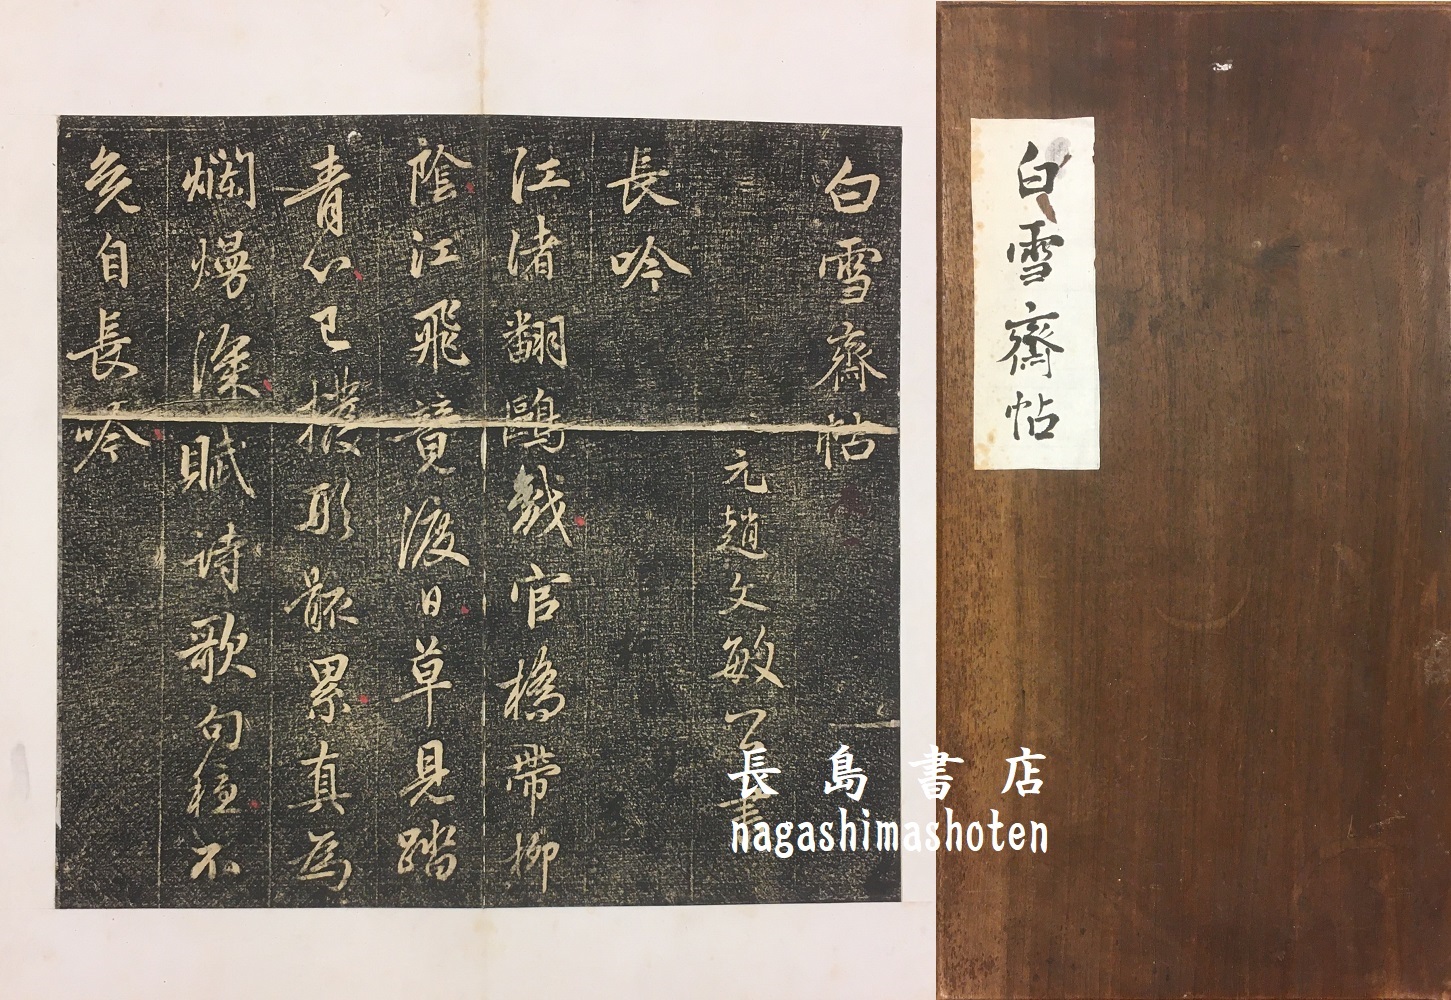 白雪齋帖
元趙文敏公書
長吟
江渚翻鷗戲官橋帶柳
陰江飛競渡日草見踏
青心已撥形骸累真為
爛熳深賦詩歌句穩不
免自長吟
白雪齋帖
長島書店
nagashimashoten